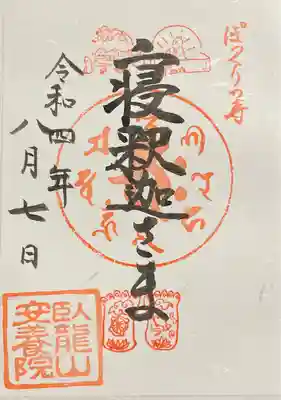 ぽっくりの寺
寝釈迦さま
令和四年
八月七日
臥龍山
安養院